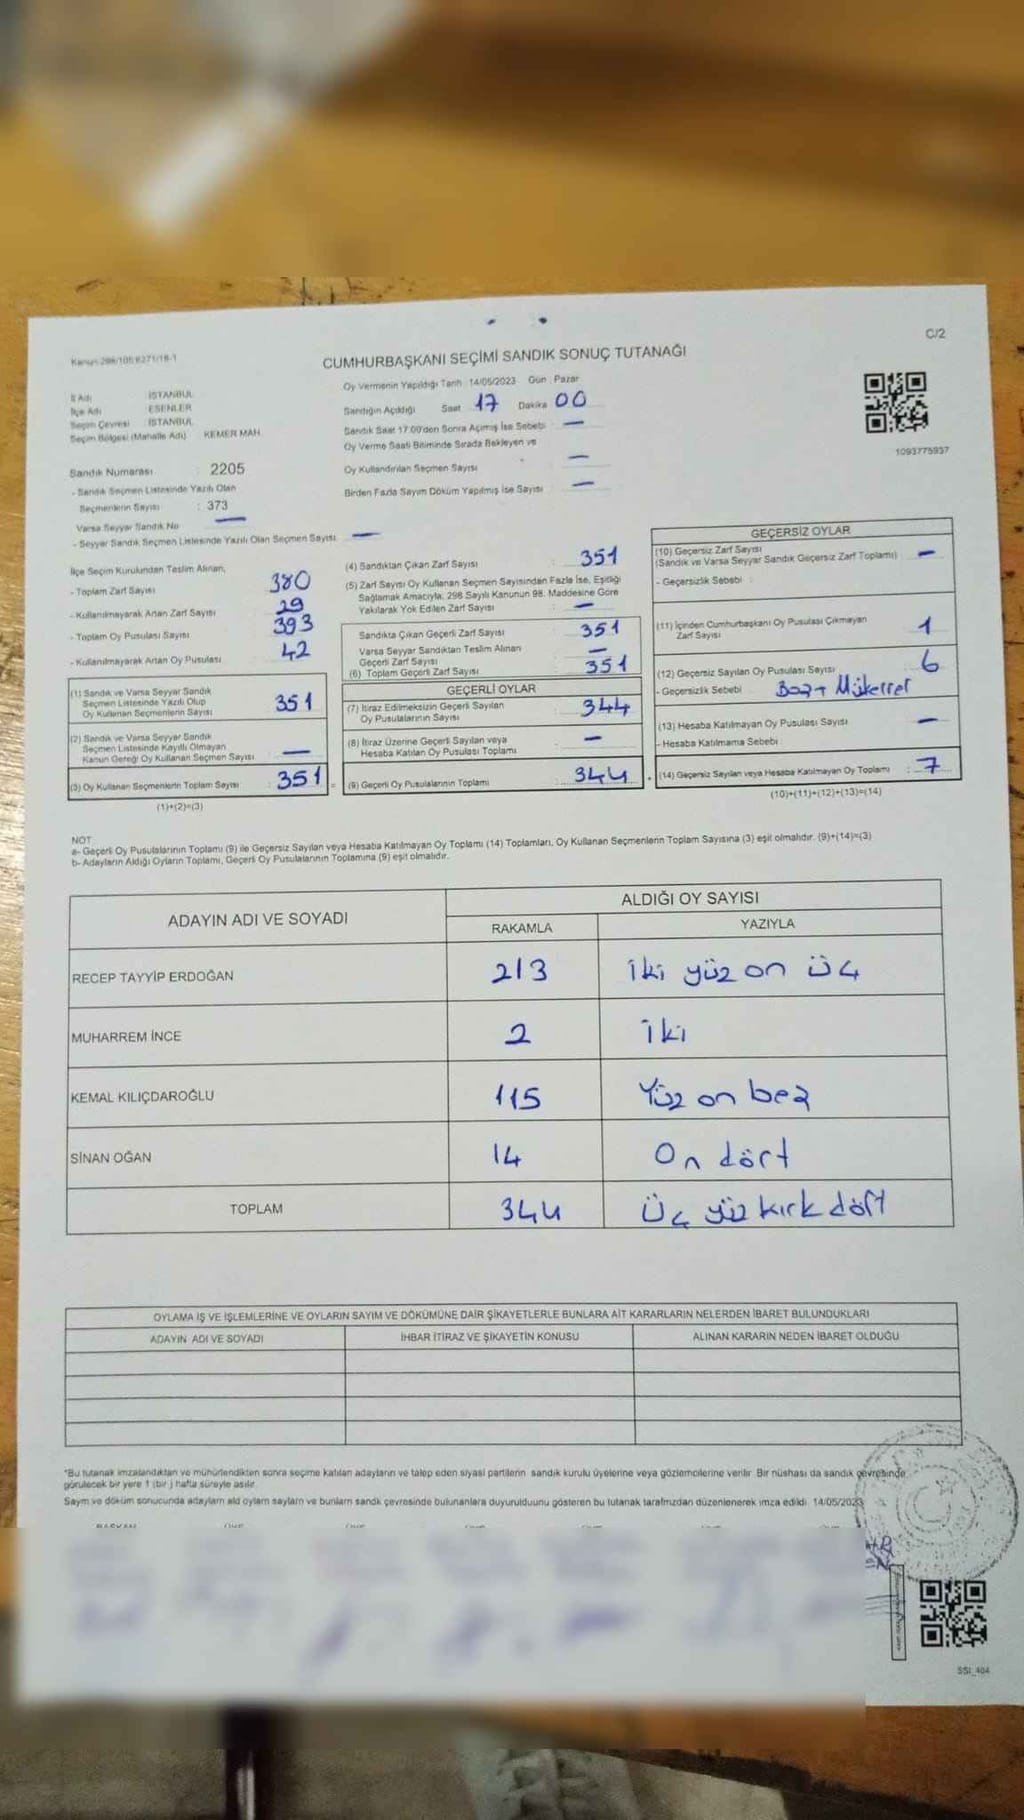 C/2
Kanun:298/105 6271/18-1
CUMHURBAŞKANI SEÇİMİ SANDIK SONUÇ TUTANAĞI
İl Adı : İSTANBUL
İlçe Adı : ESENLER
Seçim Çevresi : İSTANBUL
Seçim Bölgesi (Mahalle Adı) : KEMER MAH.
Sandık Numarası : 2205
- Sandık Seçmen Listesinde Yazılı Olan
Seçmenlerin Sayısı : 373
Varsa Seyyar Sandık No —
- Seyyar Sandık Seçmen Listesinde Yazılı Olan Seçmen Sayısı —
Oy Vermenin Yapıldığı Tarih : 14/05/2023 Gün : Pazar
Sandığın Açıldığı Saat 17 Dakika 00
Sandık Saat 17:00'den Sonra Açılmış İse Sebebi : —
Oy Verme Saati Bitiminde Sırada Bekleyen ve
Oy Kullandırılan Seçmen Sayısı : —
Birden Fazla Sayım Döküm Yapılmış İse Sayısı : —
1093775937
İlçe Seçim Kurulundan Teslim Alınan;
- Toplam Zarf Sayısı : 380
- Kullanılmayarak Artan Zarf Sayısı : 29
- Toplam Oy Pusulası Sayısı : 393
- Kullanılmayarak Artan Oy Pusulası : 42
(1) Sandık ve Varsa Seyyar Sandık
Seçmen Listesinde Yazılı Olup
Oy Kullanan Seçmenlerin Sayısı : 351
(2) Sandık ve Varsa Seyyar Sandık
Seçmen Listesinde Kayıtlı Olmayan
Kanun Gereği Oy Kullanan Seçmen Sayısı : —
(3) Oy Kullanan Seçmenlerin Toplam Sayısı : 351
(1)+(2)=(3)
(4) Sandıktan Çıkan Zarf Sayısı : 351
(5) Zarf Sayısı Oy Kullanan Seçmen Sayısından Fazla İse, Eşitliği
Sağlamak Amacıyla, 298 Sayılı Kanunun 98. Maddesine Göre
Yakılarak Yok Edilen Zarf Sayısı : —
Sandıkta Çıkan Geçerli Zarf Sayısı : 351
Varsa Seyyar Sandıktan Teslim Alınan
Geçerli Zarf Sayısı : —
(6) Toplam Geçerli Zarf Sayısı : 351
GEÇERLİ OYLAR
(7) İtiraz Edilmeksizin Geçerli Sayılan
Oy Pusulalarının Sayısı : 344
(8) İtiraz Üzerine Geçerli Sayılan veya
Hesaba Katılan Oy Pusulası Toplamı : —
(9) Geçerli Oy Pusulalarının Toplamı : 344
GEÇERSİZ OYLAR
(10) Geçersiz Zarf Sayısı
(Sandık ve Varsa Seyyar Sandık Geçersiz Zarf Toplamı) : —
- Geçersizlik Sebebi :
(11) İçinden Cumhurbaşkanı Oy Pusulası Çıkmayan
Zarf Sayısı : 1
(12) Geçersiz Sayılan Oy Pusulası Sayısı : 6
- Geçersizlik Sebebi : Boş + Mükerrer
(13) Hesaba Katılmayan Oy Pusulası Sayısı : —
- Hesaba Katılmama Sebebi :
(14) Geçersiz Sayılan veya Hesaba Katılmayan Oy Toplamı : 7
(10)+(11)+(12)+(13)=(14)
NOT
a- Geçerli Oy Pusulalarının Toplamı (9) ile Geçersiz Sayılan veya Hesaba Katılmayan Oy Toplamı (14) Toplamları, Oy Kullanan Seçmenlerin Toplam Sayısına (3) eşit olmalıdır. (9)+(14)=(3)
b- Adayların Aldığı Oyların Toplamı, Geçerli Oy Pusulalarının Toplamına (9) eşit olmalıdır.
ADAYIN ADI VE SOYADI
ALDIĞI OY SAYISI
RAKAMLA YAZIYLA
RECEP TAYYİP ERDOĞAN 213 iki yüz on üç
MUHARREM İNCE 2 iki
KEMAL KILIÇDAROĞLU 115 Yüz on beş
SİNAN OĞAN 14 On dört
TOPLAM 344 Üç yüz kırk dört
OYLAMA İŞ VE İŞLEMLERİNE VE OYLARIN SAYIM VE DÖKÜMÜNE DAİR ŞİKAYETLERLE BUNLARA AİT KARARLARIN NELERDEN İBARET BULUNDUKLARI
ADAYIN ADI VE SOYADI İHBAR İTİRAZ VE ŞİKAYETİN KONUSU ALINAN KARARIN NEDEN İBARET OLDUĞU
*Bu tutanak imzalandıktan ve mühürlendikten sonra seçime katılan adayların ve talep eden siyasi partilerin sandık kurulu üyelerine veya gözlemcilerine verilir. Bir nüshası da sandık çevresinde
görülecek bir yere 1 (bir) hafta süreyle asılır.
Sayım ve döküm sonucunda adayların aldı oyların sayıları ve bunların sandık çevresinde bulunanlara duyurulduunu gösteren bu tutanak tarafımızdan düzenlenerek imza edildi. 14/05/2023
SSI_404